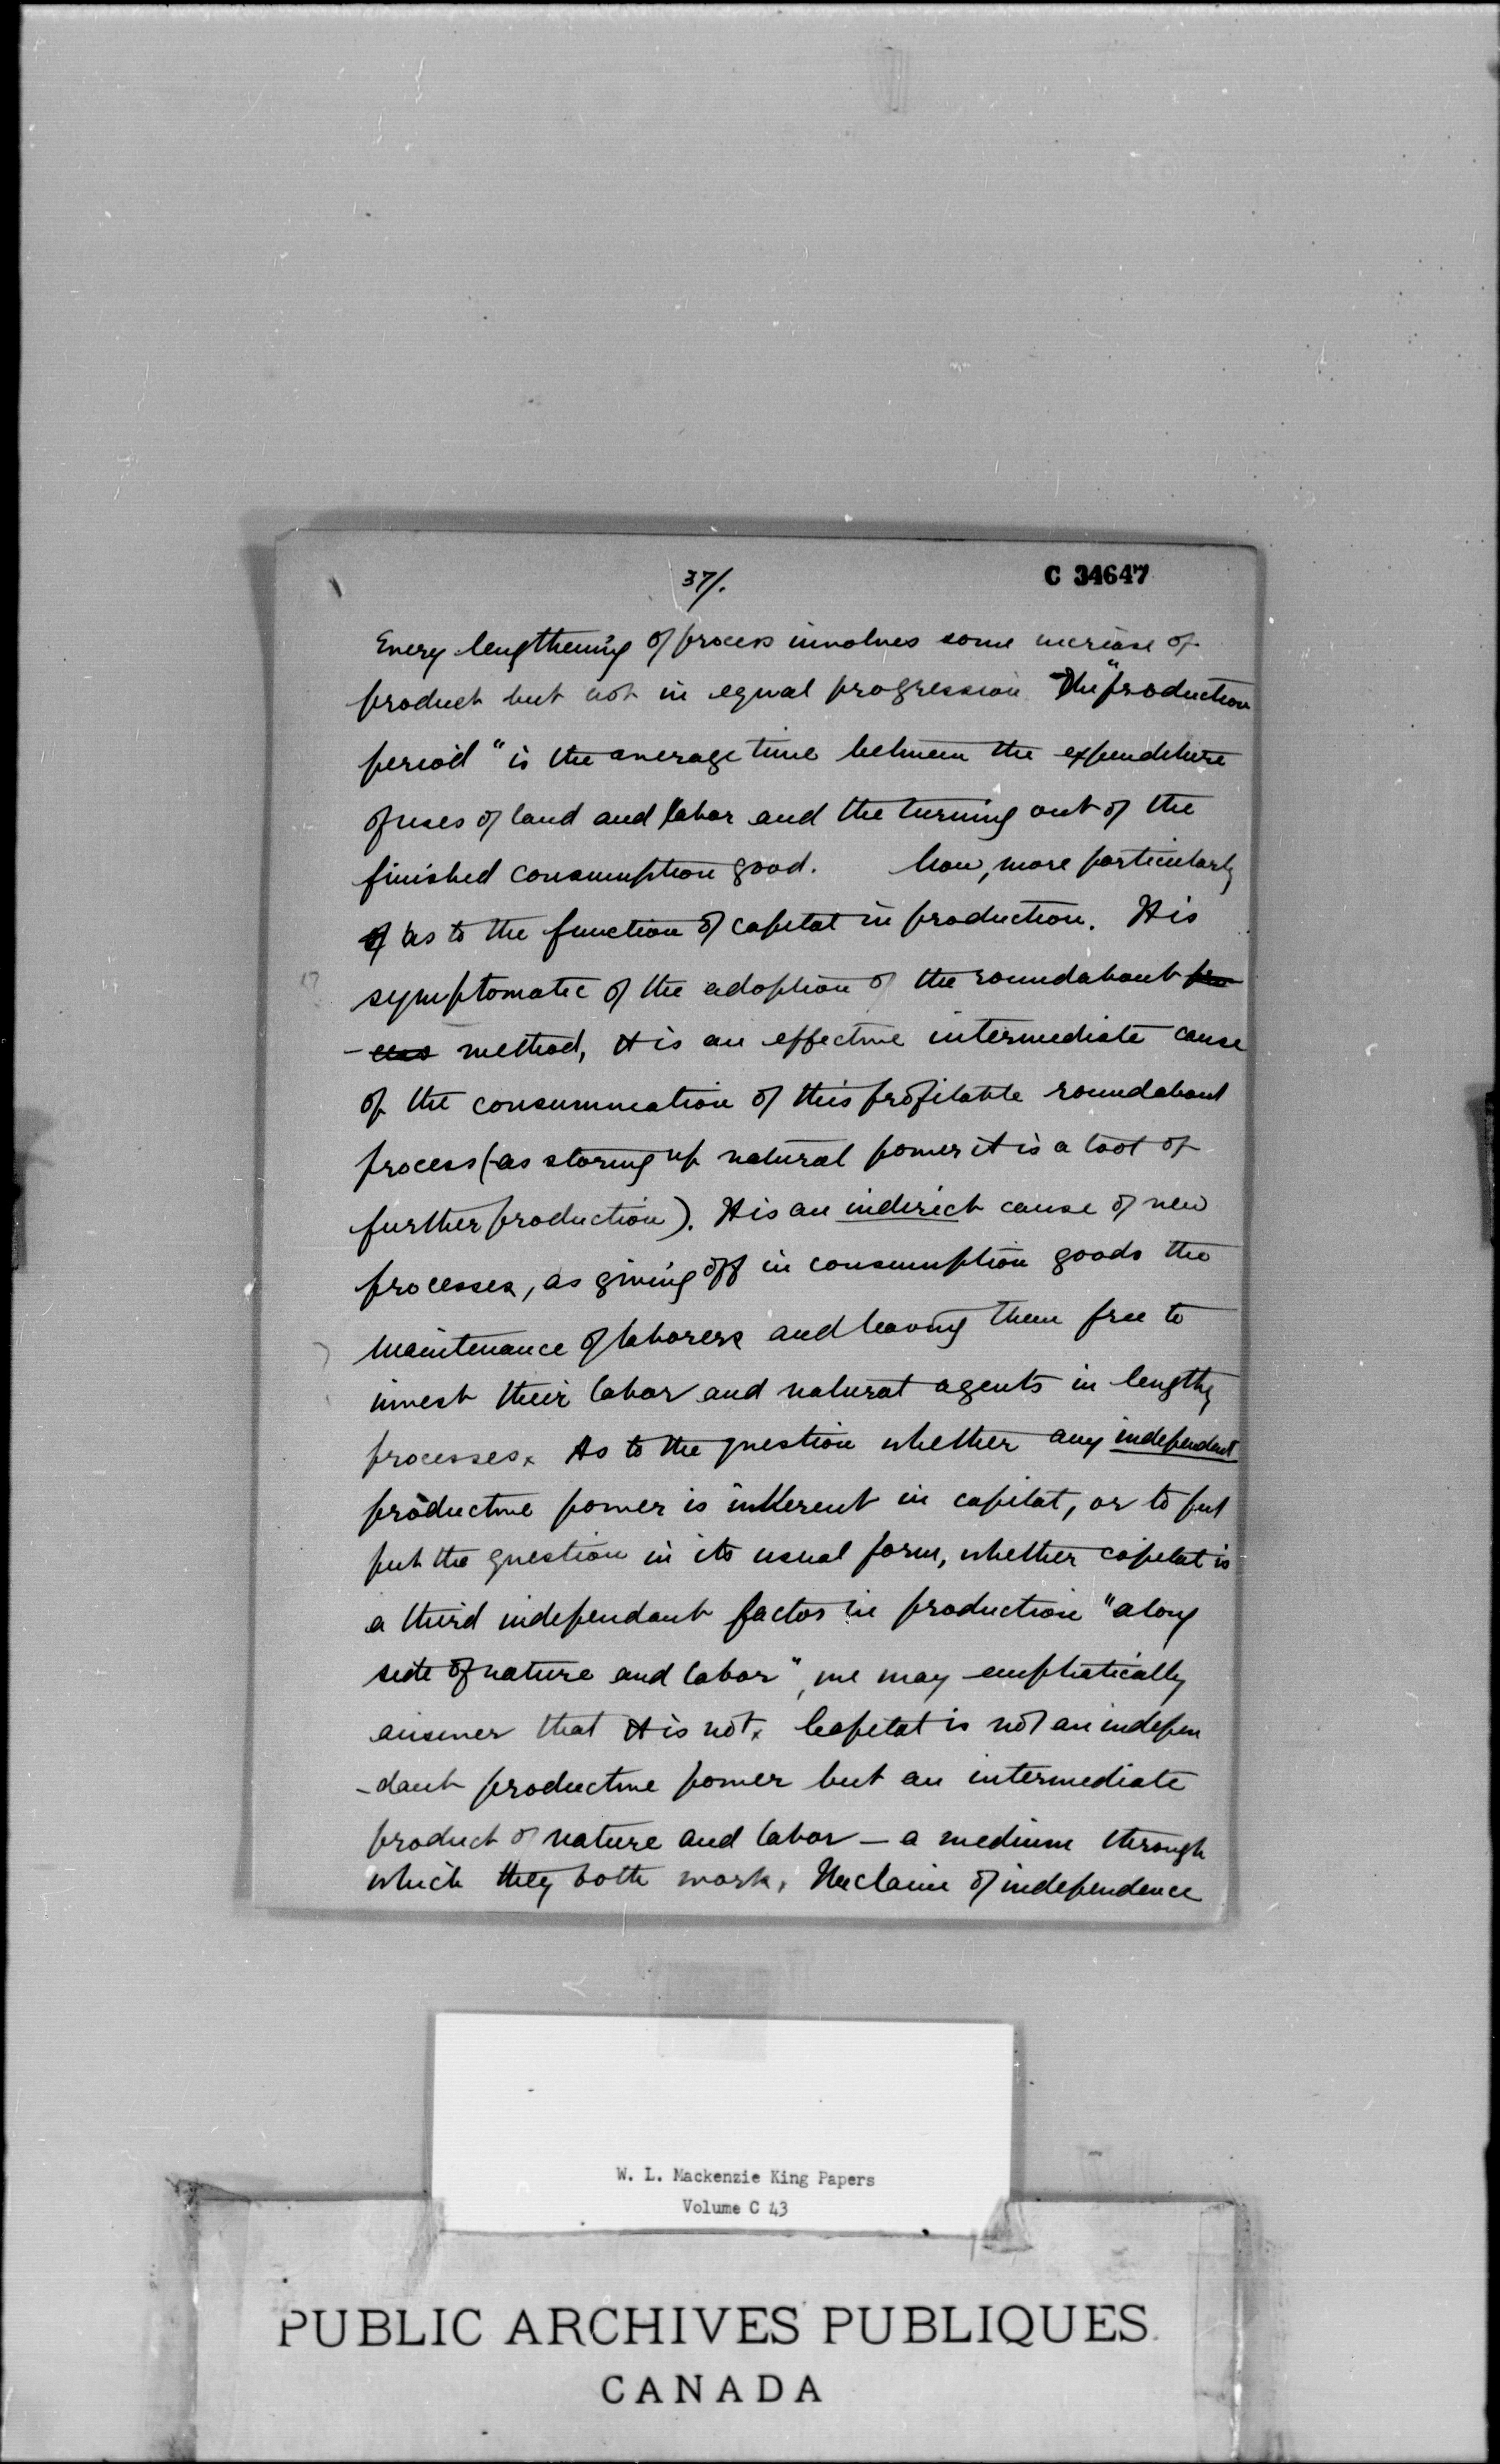 37/.
C 34647
Every lengthening of process involves some increase of
product but not in equal progression. The "production
period" is the average time between the expenditure
of uses of land and labor and the turning out of the
finished consumption good. Now, more particularly
of as to the function of capital in production. It is
symptomatic of the adoption of the roundabout pro
-cess method, it is an effective intermediate cause
of the consummation of this profitable roundabout
process (as storing up natural power it is a tool of
further production). It is an indirect cause of new
processes, as giving off in consumption goods the
maintenance of laborers and leaving them free to
invest their labor and natural agents in lengthy
processes. As to the question whether any independent
productive power is inherent in capital, or to put
put the question in its usual form, whether capital is
a third independant factor in production "along
side of nature and labor", we may emphatically
answer that it is not. Capital is not an indepen
-dant productive power but an intermediate
product of nature and labor – a medium through
which they both work. The claim of independence
W. L. Mackenzie King Papers
Volume C 43
PUBLIC ARCHIVES PUBLIQUES
CANADA